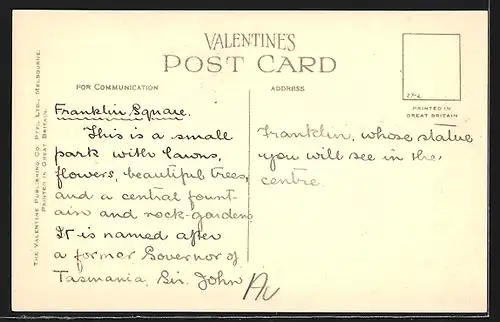 VALENTINE'S
POST CARD
FOR COMMUNICATION
ADDRESS
2742
PRINTED IN
GREAT BRITAIN
THE VALENTINE PUBLISHING CO. PTY., LTD., MELBOURNE.
PRINTED IN GREAT BRITAIN.
Franklin Square.
This is a small
park with lawns,
flowers, beautiful trees,
and a central fount-
ain and rock-garden.
It is named after
a former Governor of
Tasmania, Sir. John
Franklin, whose statue
you will see in the
centre.
Au